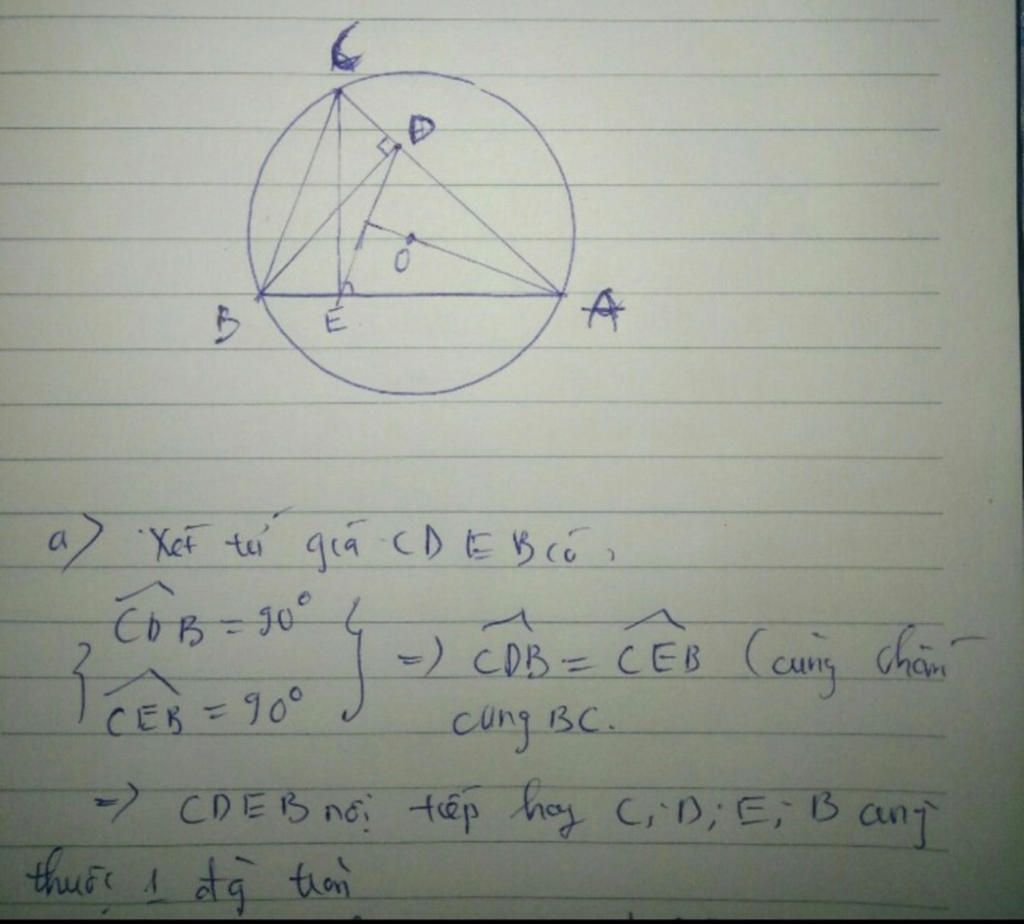 C
D
O
B
E
A
a) Xét tứ giá CDEB có,
CDB = 90°
CEB = 90°
=) CDB = CEB (cùng chắn
cung BC.
=) CDEB nội tiếp hay C; D; E; B cùng
thuộc 1 đg tròn